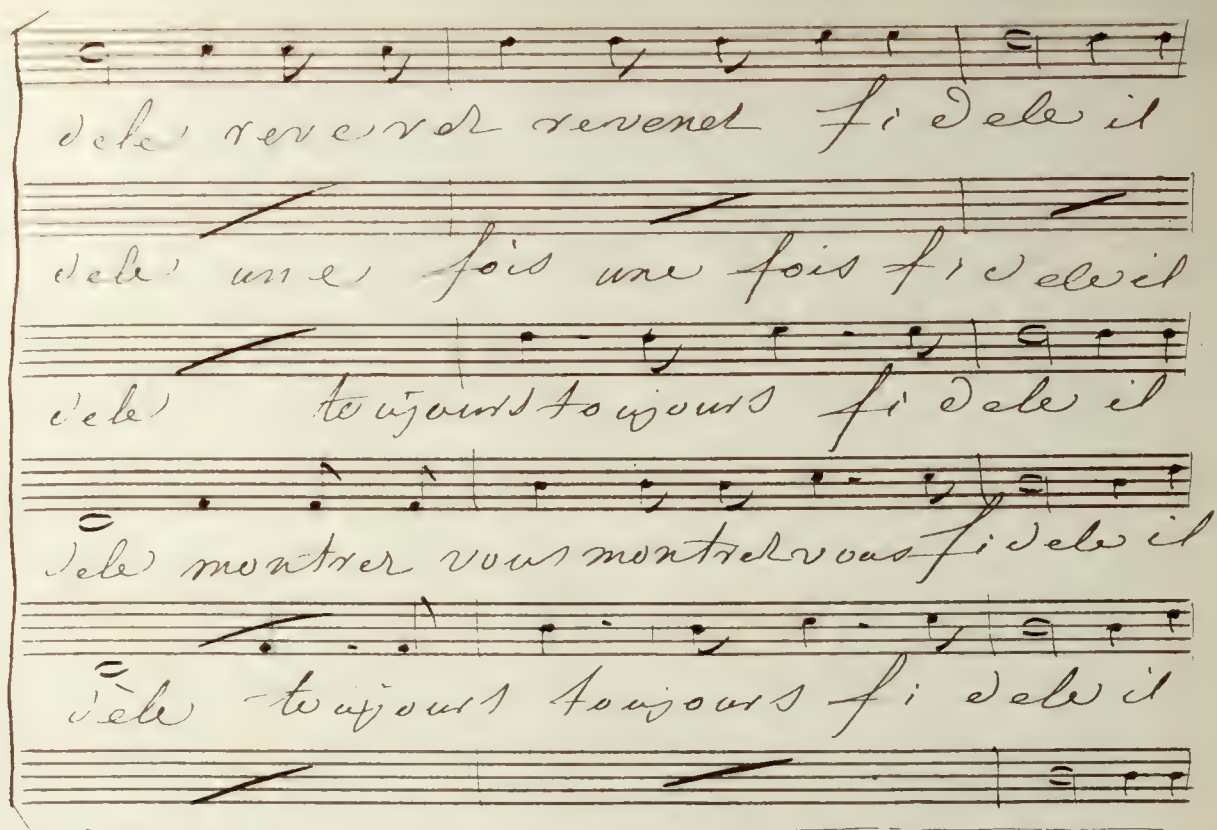 dele revenez revenez fi dele il
dele une fois une fois fi dele il
dele toujours toujours fi dele il
dele montrez vous montrez vous fi dele il
dèle toujours toujours fi dele il